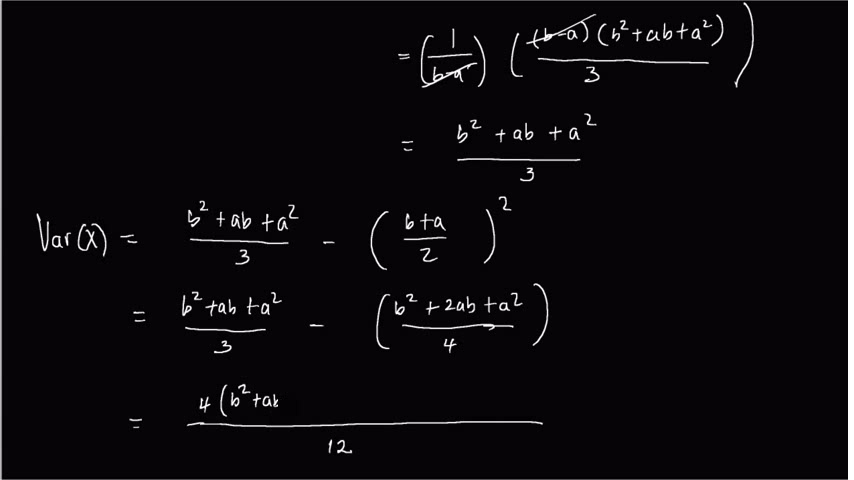 = (1/(b-a)) ((b-a)(b²+ab+a²)/3)
= (b²+ab+a²)/3
Var(X) = (b²+ab+a²)/3 - ((b+a)/2)²
= (b²+ab+a²)/3 - ((b²+2ab+a²)/4)
= 4(b²+ab/12